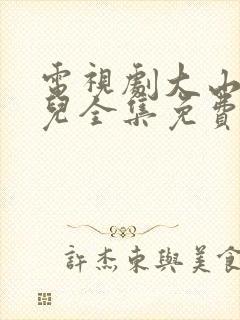 電視劇大山
兒全集免費
許杰東與美食